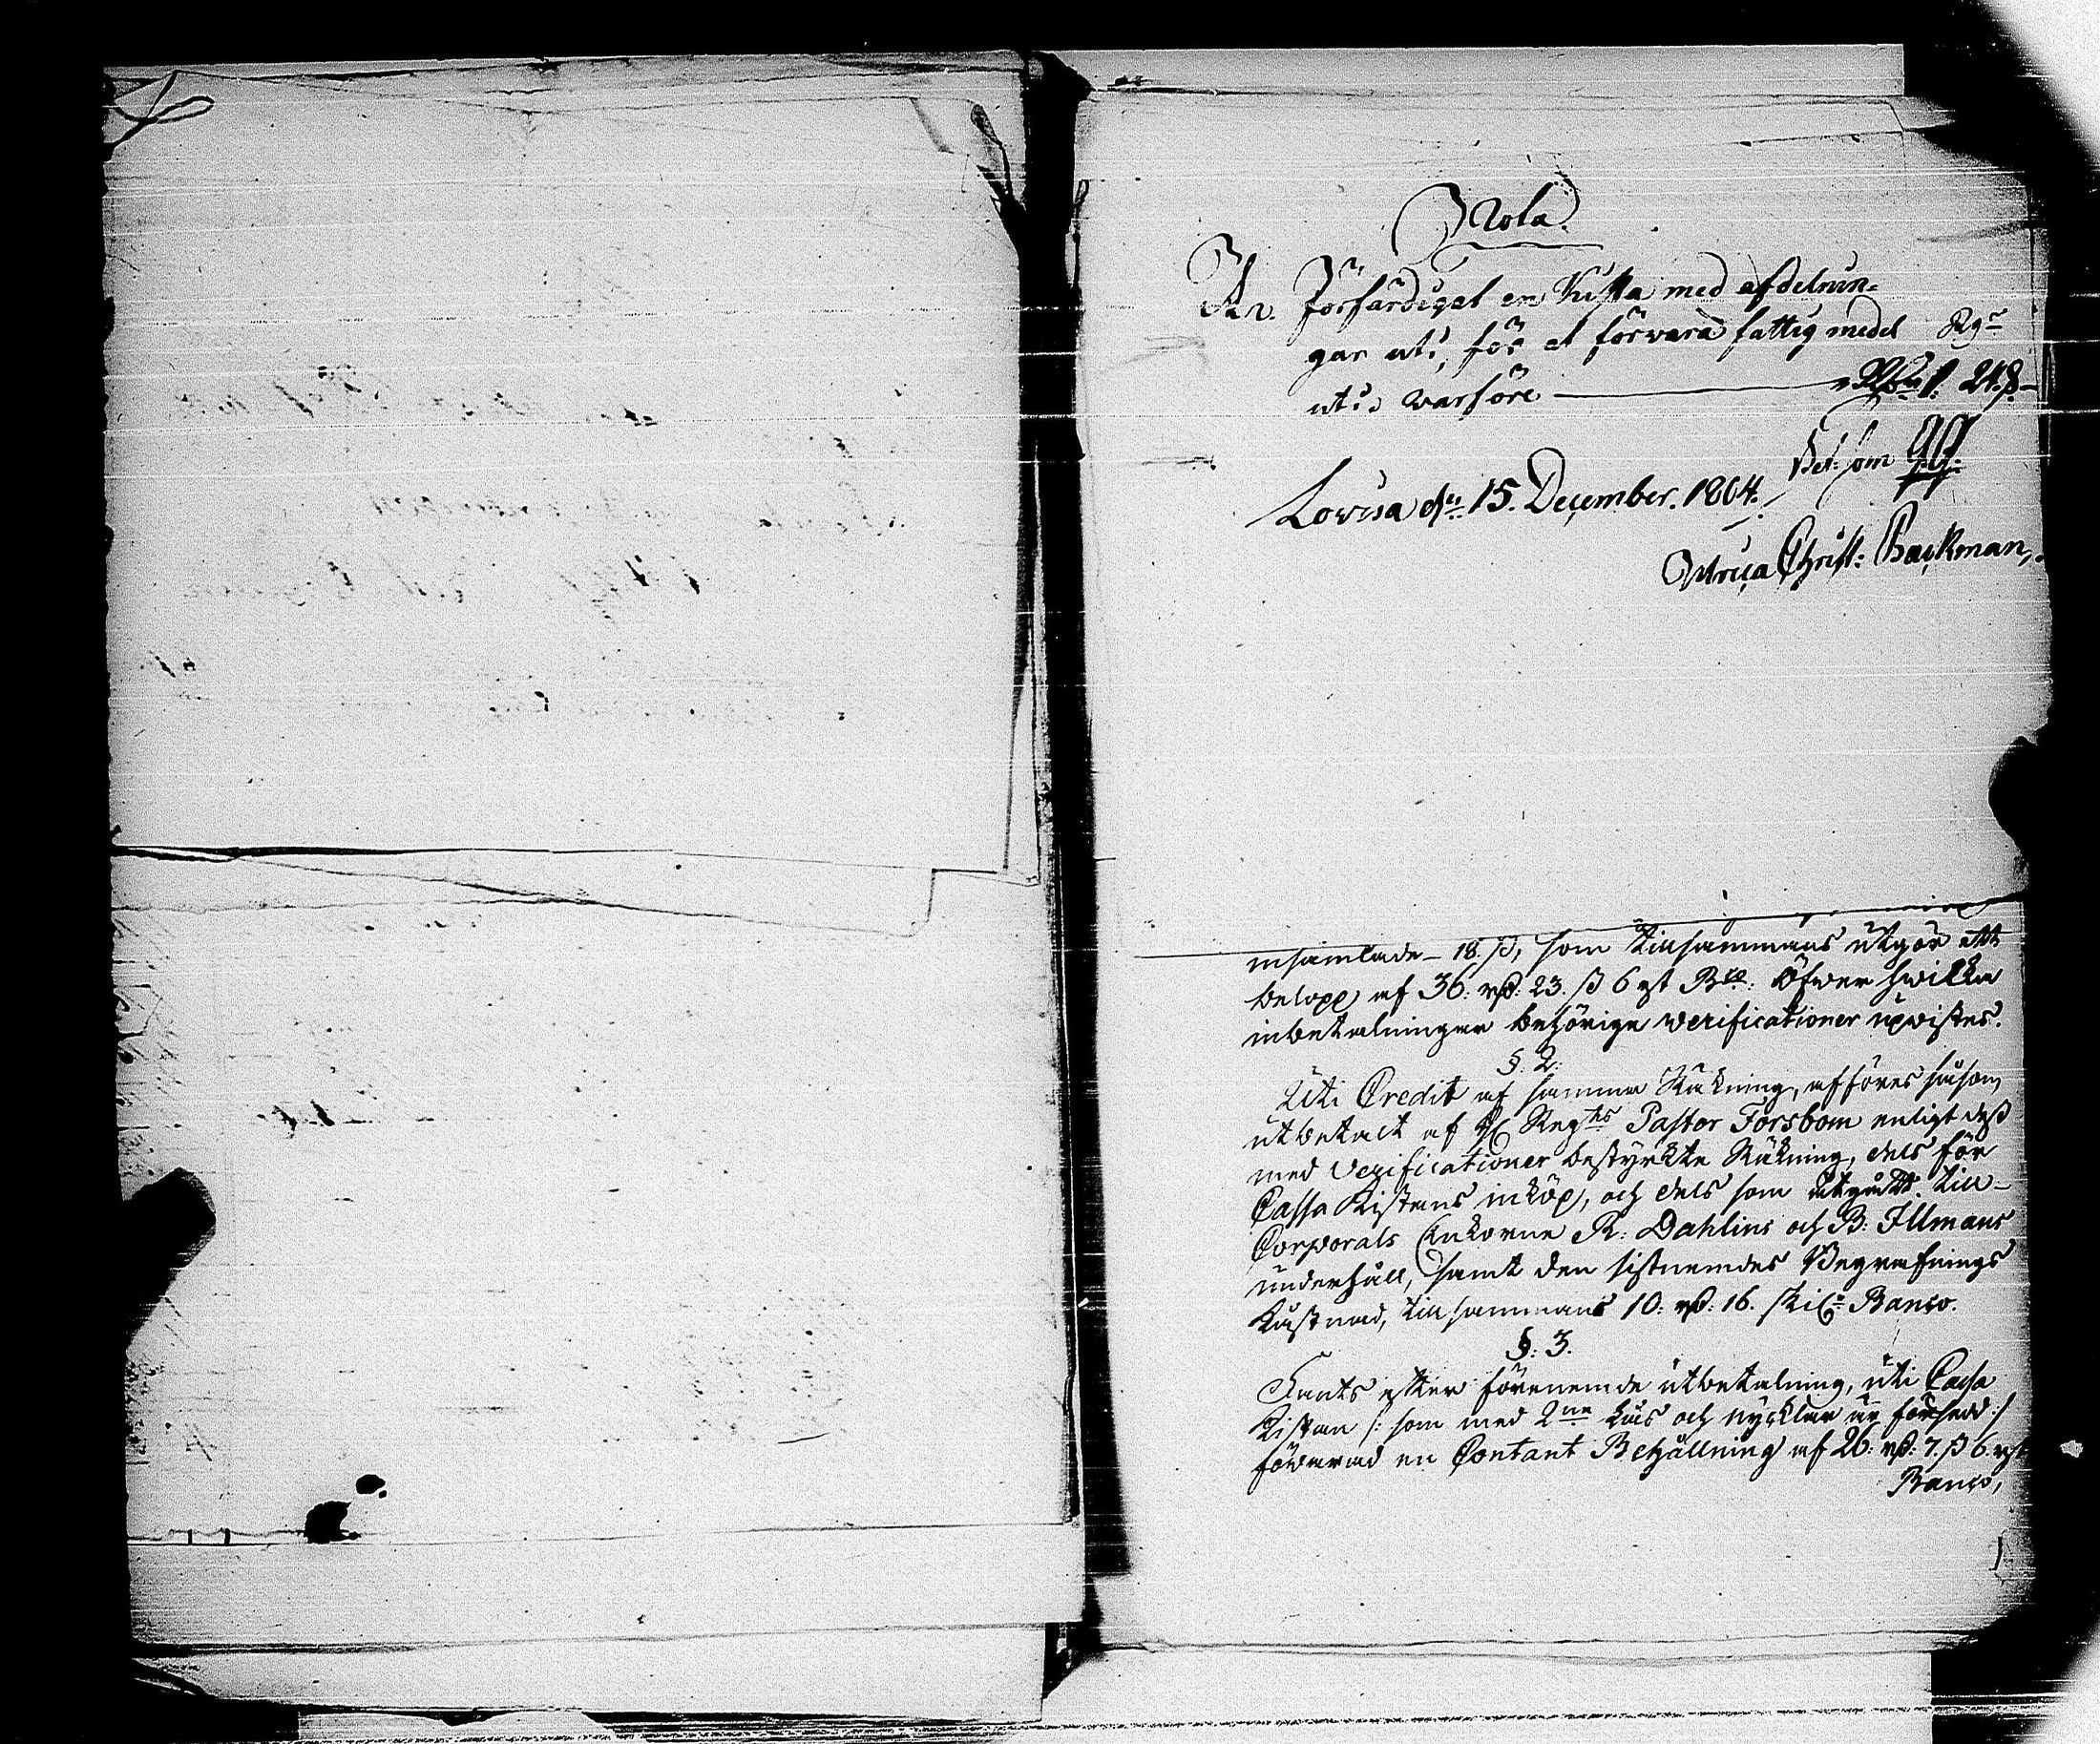 Nota.
Är Förfärdigat en Kista med afdelnin-
gar uti, för at förvara fattig medel Rg:s
uti, warföre 1: 24 ß
Bet: som
Lovisa d:n 15. December. 1804.
Ulrica Christ: Backman,
insamlade – 18. ß, som tillsammans utgör ett
belopp af 36: rd: 23. ß 6 rst B:co. Öfwer hwilka
inbetalningar behörige verificationer upvistes.
§. 2.
Uti Credit af samma Räkning, afföres såsom
utbetalt af Reg:ts Pastor Forsbom enligt dess
med verificationer bestyrkte Räkning, dels för
Cassa Kistans inköp, och dels som utgådt till
Corporals Enkorne R: Dahlins och B: Illmans
underhåll, samt den sistnemdes Begrafnings
Kostnad, tillsammans 10: rd: 16. skil: Banco.
§: 3.
Fants efter förenemde utbetalning, uti Cassa
Kistan /: som med 2:ne lås och nycklar är försedd :/
förwarad en Contant Behållning af 26: rd: 7. ß 6. rst
Banco,